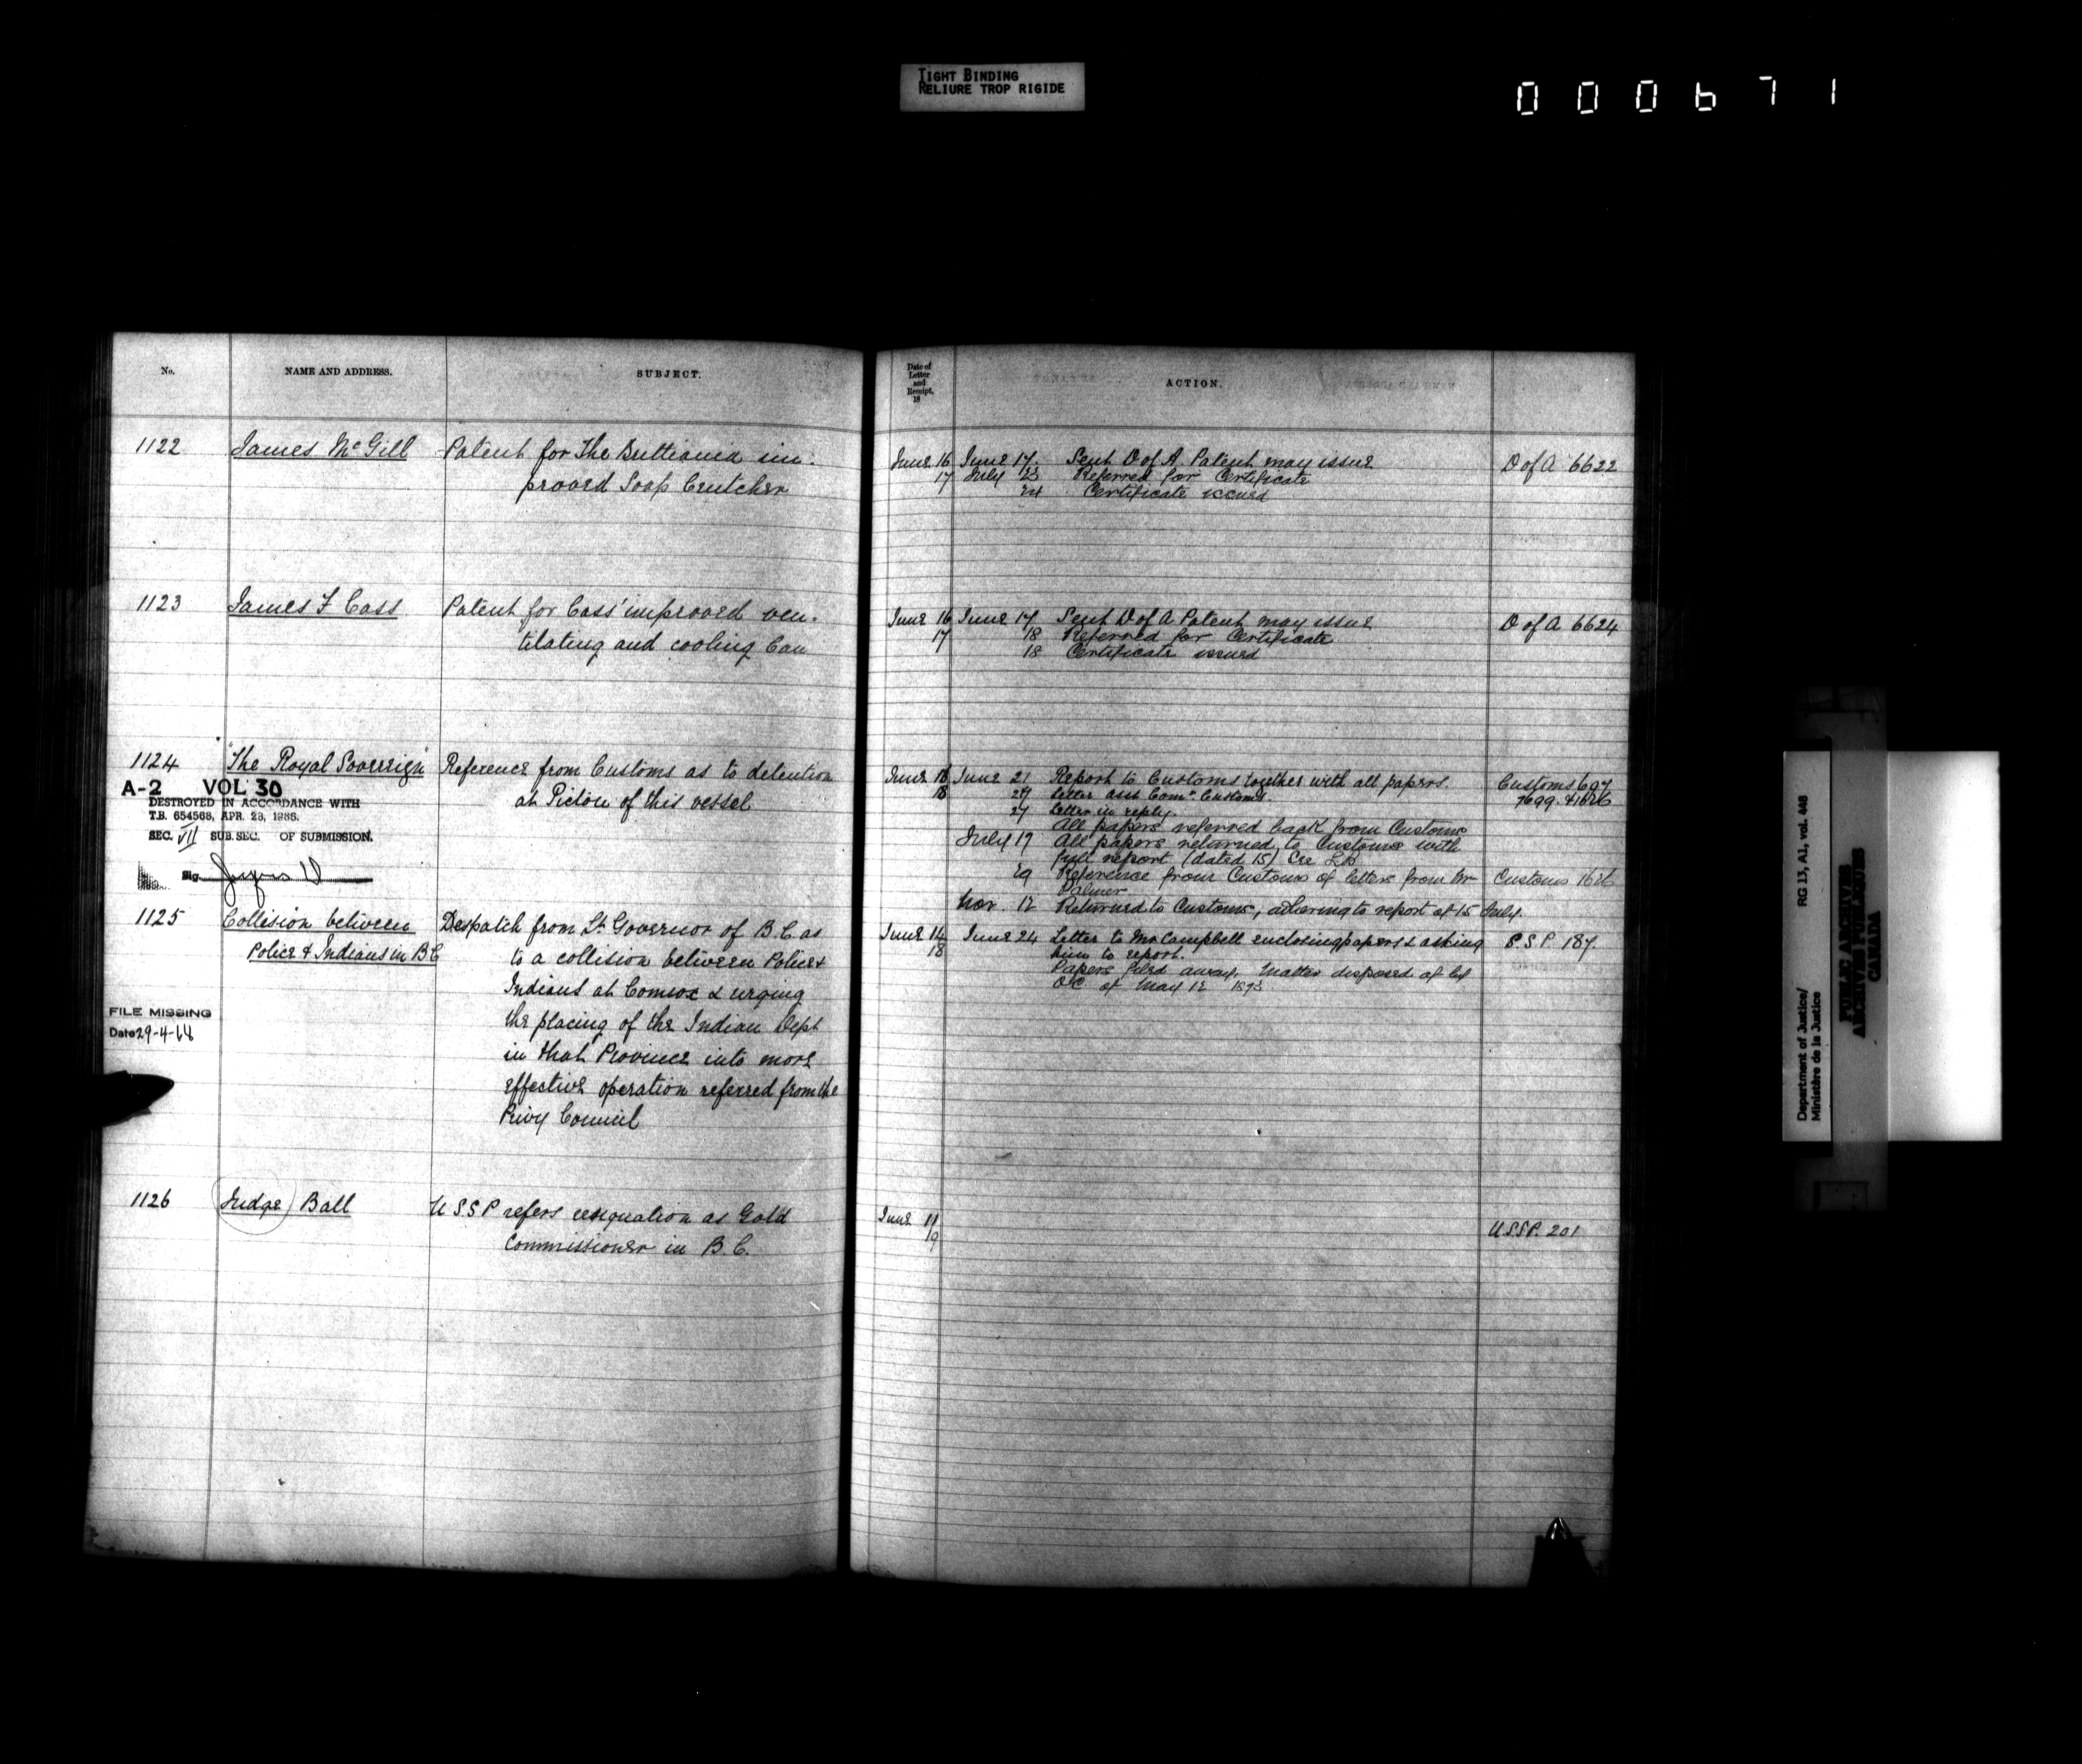 TIGHT BINDING
RELIURE TROP RIGIDE
000671
No.
NAME AND ADDRESS.
SUBJECT.
1122 James McGill Patent for The Brittiania im-
proved Soap Crutcher
1123 James F Cass Patent for Cass' improved ven-
tilating and cooling Can
1124 "The Royal Sovereign" Reference from Customs as to detention
at Pictou of this vessel
A-2 VOL 30
DESTROYED IN ACCORDANCE WITH
T.B. 654568, APR. 23, 1966.
SEC. VII SUB.SEC. OF SUBMISSION.
Sig.
1125 Collision between
Police & Indians in B C
Despatch from Lt Governor of B.C. as
to a collision between Police &
Indians at Comox & urging
the placing of the Indian Dept
in that Province into more
effective operation referred from the
Privy Council
FILE MISSING
Date 29-4-68
1126 Judge Ball U S S P refers resignation as Gold
Commissioner in B.C.
Date of
Letter
and
Receipt,
18
ACTION.
June 16 June 17. Sent D of A Patent may issue D of A 6622
17 July 23 Referred for Certificate
24 Certificate issued
June 16 June 17 Sent D of A Patent may issue D of A 6624
17 18 Referred for Certificate
18 Certificate issued
June 16 June 21 Report to Customs together with all papers. Customs 697
18 27 Letter asst Comr Customs. 7699. & 1626
27 Letter in reply.
All papers referred back from Customs
July 17 All papers returned to Customs with
full report (dated 15) See L.B
29 Reference from Customs of letter from Mr Customs 1626
Palmer
Nov. 12 Returned to Customs, adhering to report of 15 July.
June 14 June 24 Letter to Mr Campbell enclosing papers & asking S.S.P. 187.
18 him to report.
Papers filed away. Matter disposed of by
O.C. of May 12 1873
June 11 U.S.S.P. 201
19
Department of Justice/
Ministère de la Justice
RG 13, A1, vol. 446
PUBLIC ARCHIVES
ARCHIVES PUBLIQUES
CANADA